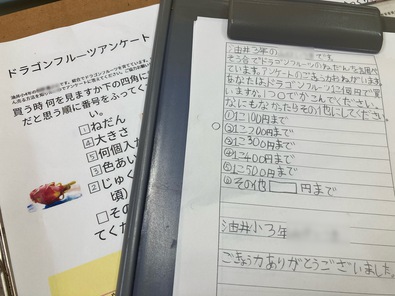 ドラゴンフルーツアンケート
買う時 何を見ますか下の四角に
だと思う順に番号をふってくだ
い。
1 ねだん
4 大きさ
5 何個入
3 色あい
2 じゅく
頃）
□その
てくだ
油井3年の です。
そう合でドラゴンフルーツの
ています。アンケートのごきょう力おねがいします。
あなたは、ドラゴンフルーツ1こ何円で買
いますか。1つ○でかこんでください。
なにもなかったらその他にしてください。
①1こ100円まで
②1こ200円まで
③1こ300円まで
④1こ400円まで
⑤1こ500円まで
⑥その他 円まで
油井小3年
ごきょう力ありがとうございました。